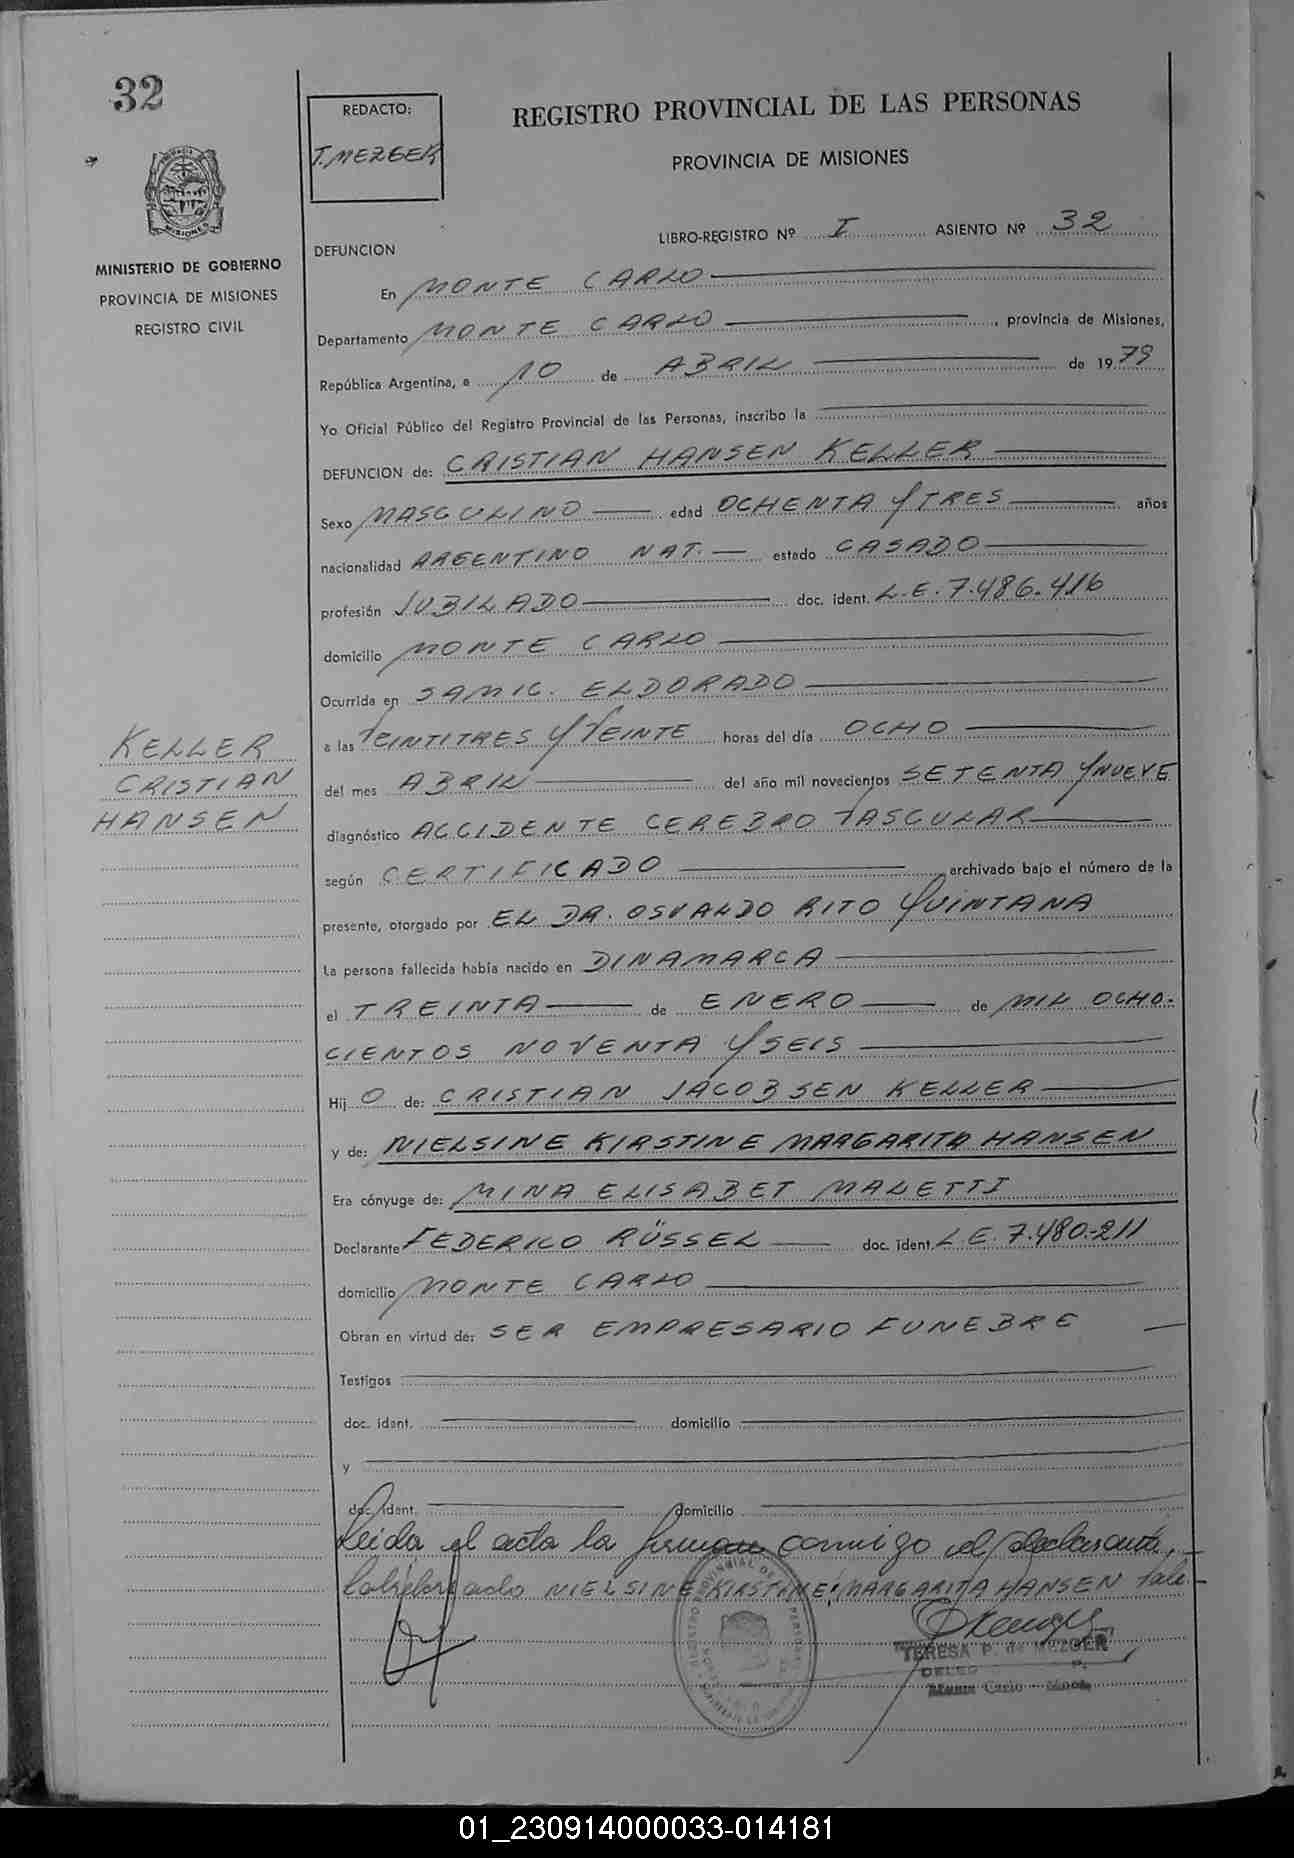 32
REDACTO:
T. MEZGER
REGISTRO PROVINCIAL DE LAS PERSONAS
PROVINCIA DE MISIONES
MINISTERIO DE GOBIERNO
PROVINCIA DE MISIONES
REGISTRO CIVIL
LIBRO-REGISTRO Nº I ASIENTO Nº 32
DEFUNCION
En MONTE CARLO
Departamento MONTE CARLO, provincia de Misiones,
República Argentina, a 10 de ABRIL de 1979
Yo Oficial Público del Registro Provincial de las Personas, inscribo la
DEFUNCION de: CRISTIAN HANSEN KELLER
Sexo MASCULINO edad OCHENTA Y TRES años
nacionalidad ARGENTINO NAT. estado CASADO
profesión JUBILADO doc. ident. L.E. 7.486.416
domicilio MONTE CARLO
Ocurrida en SAMIC. ELDORADO
a las VEINTITRES Y VEINTE horas del día OCHO
del mes ABRIL del año mil novecientos SETENTA Y NUEVE
diagnóstico ACCIDENTE CEREBRO VASCULAR
según CERTIFICADO archivado bajo el número de la
presente, otorgado por EL DR. OSVALDO RITO QUINTANA
La persona fallecida había nacido en DINAMARCA
el TREINTA de ENERO de MIL OCHO-
CIENTOS NOVENTA Y SEIS
Hij O de: CRISTIAN JACOBSEN KELLER
y de: NIELSINE KIRSTINE MARGARITA HANSEN
Era cónyuge de: MINA ELISABET MALETTI
Declarante FEDERICO RÜSSEL doc. ident. L.E. 7.480.211
domicilio MONTE CARLO
Obran en virtud de: SER EMPRESARIO FUNEBRE
Testigos
doc. ident. domicilio
y
doc. ident. domicilio
Leida el acta la firman conmigo el declarante,
Sobreborrado NIELSINE KIRSTINE MARGARITA HANSEN Vale
KELLER
CRISTIAN
HANSEN
TERESA P. de MEZGER
Monte Carlo
01_230914000033-014181